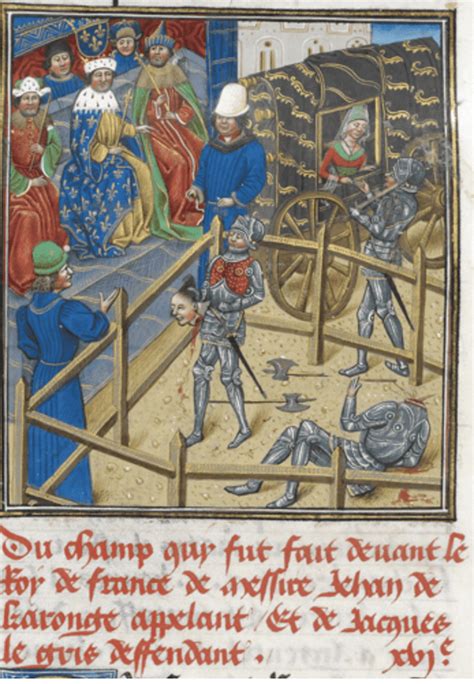 Du champ quy fut fait devant le
Roy de france de messire Jehan de
karongte appelant Et de Jacques
le gris deffendant . xvjᵉ.